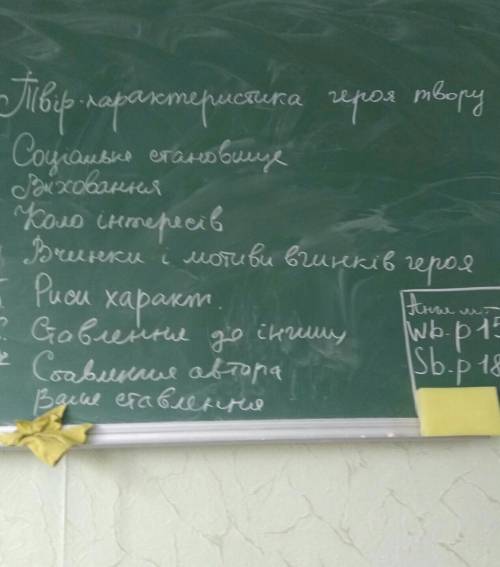 Твір-характеристика героя твору
Соціальне становище
Виховання
Коло інтересів
Вчинки і мотиви вчинків героя
Риси характ.
Ставлення до інших
Ставлення автора
Ваше ставлення
Wb. p 15
Sb. p 18